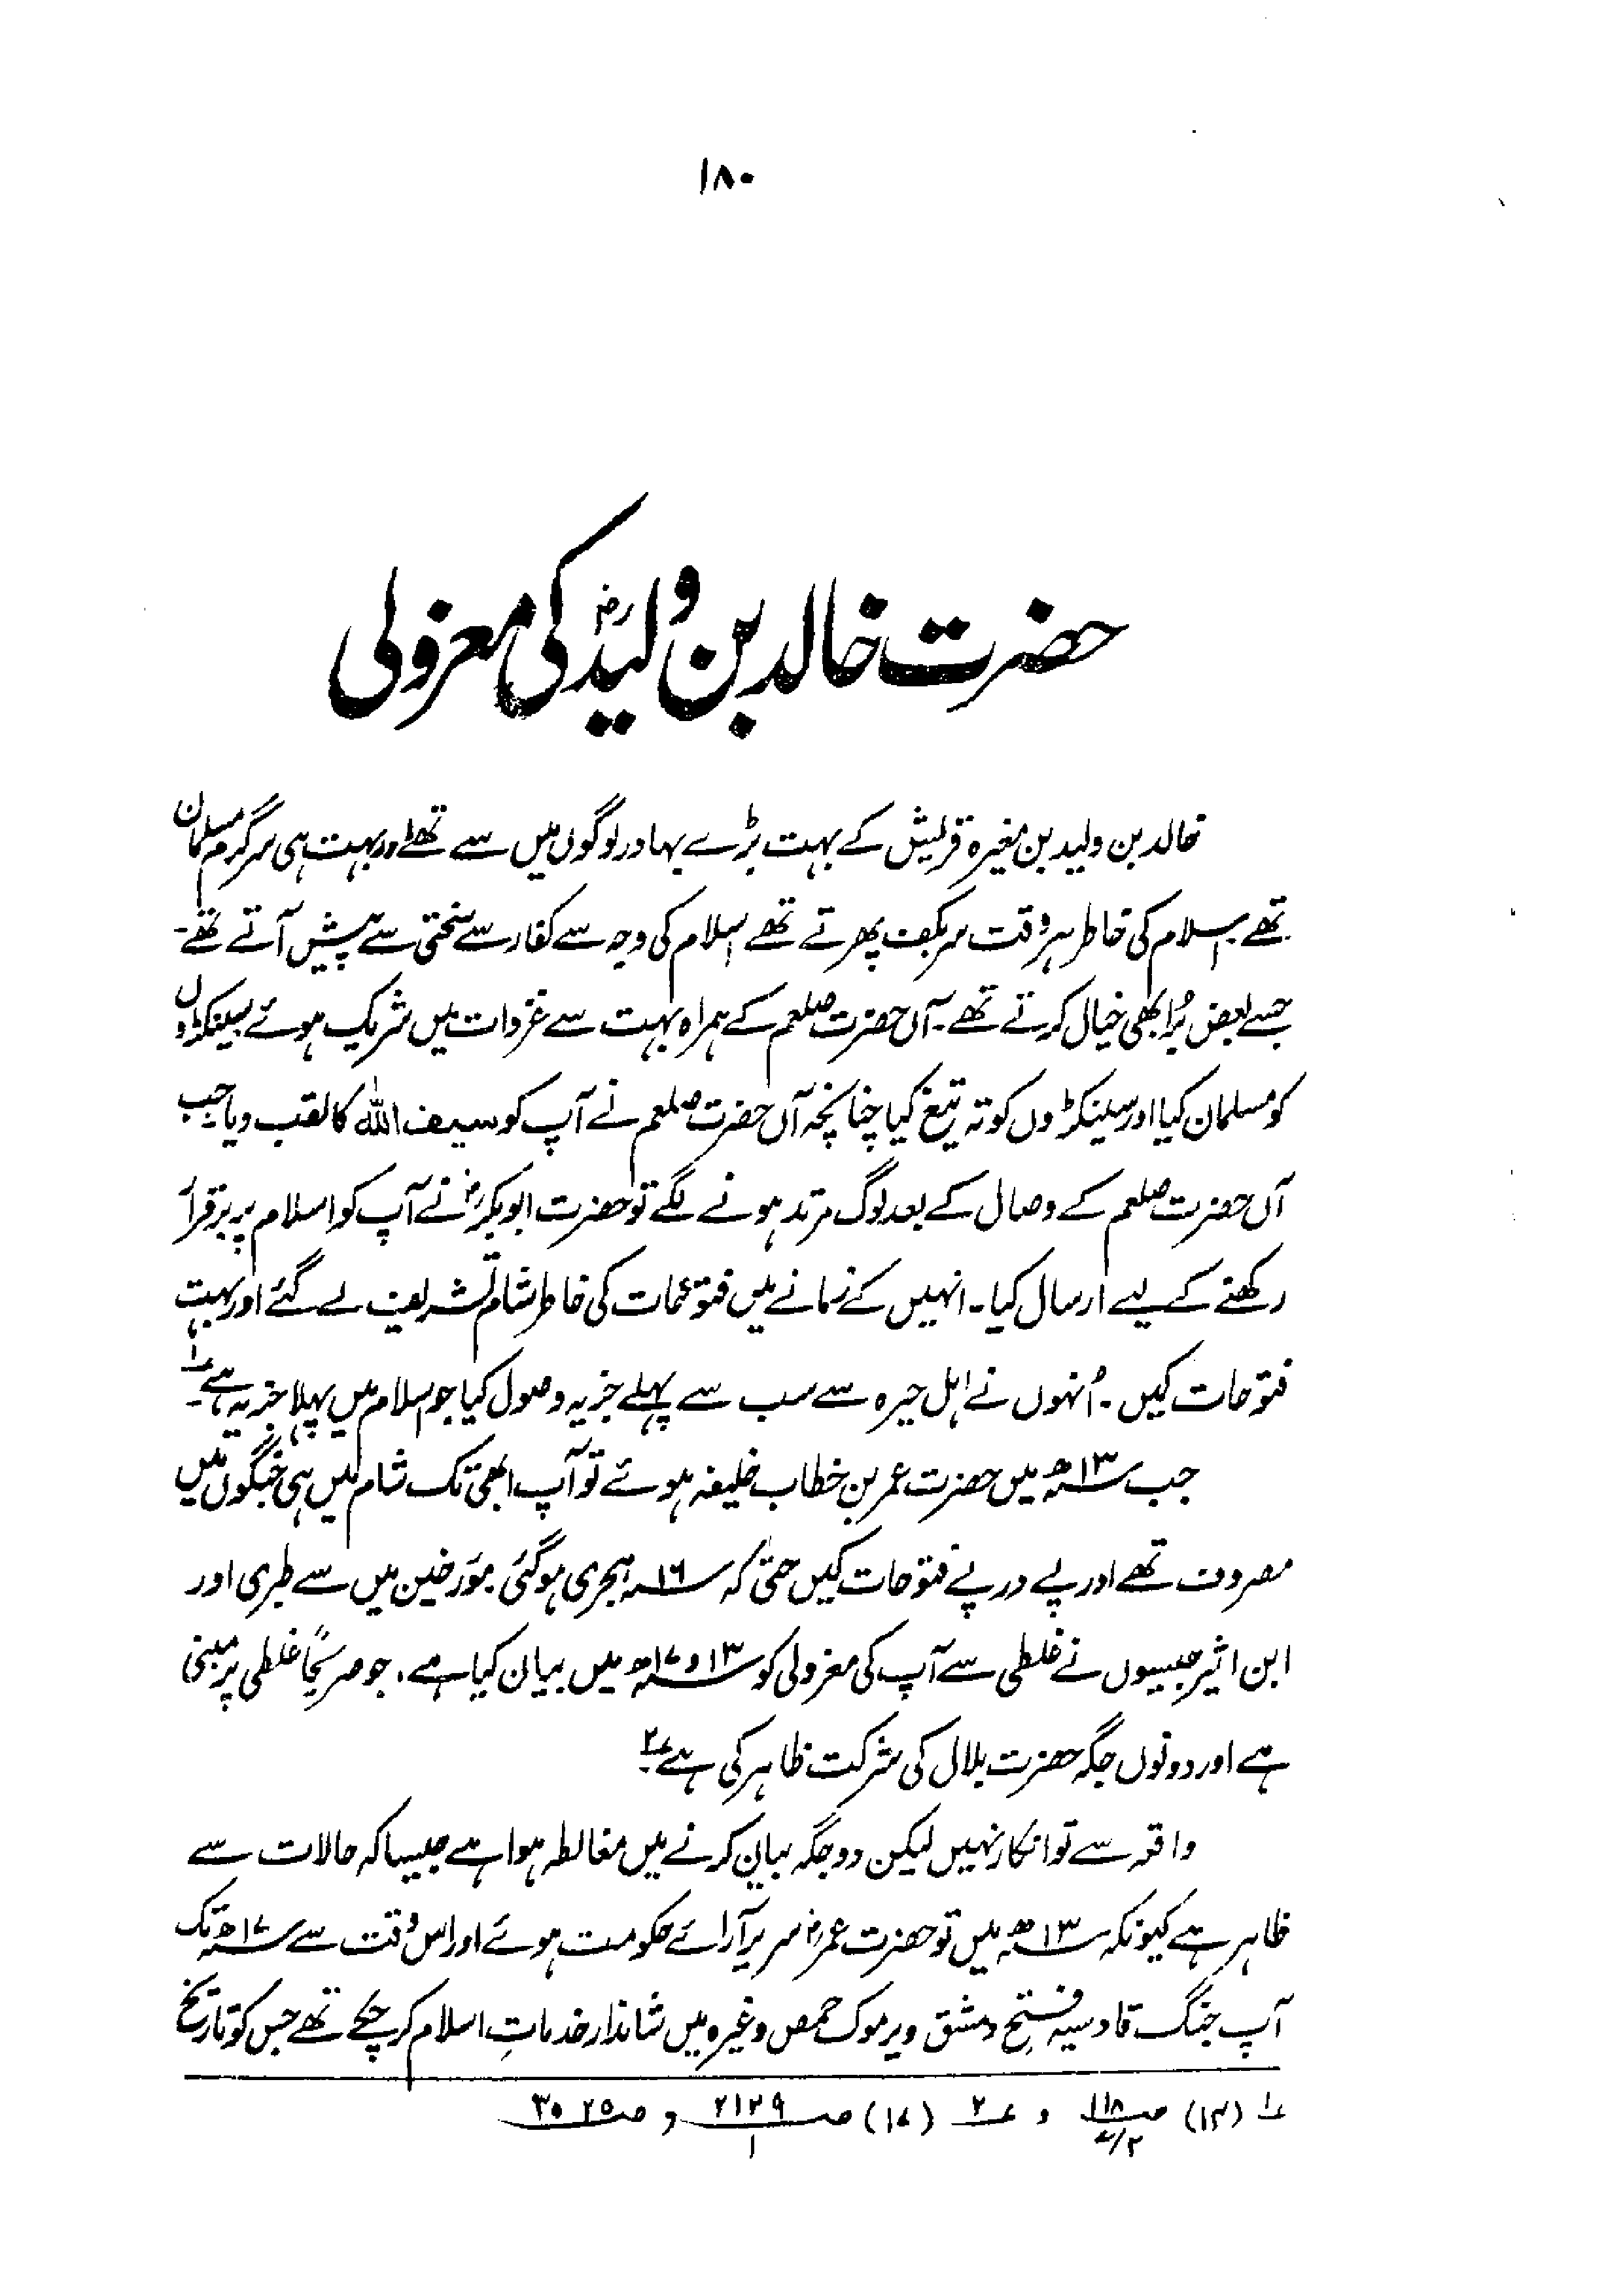 ۱۸۰
حضرت خالد بن ولیدؓ کی معزولی
خالد بن ولید بن مغیرہ قریش کے بہت بڑے بہادر لوگوں میں سے تھے اور بہت ہی سرگرم مسلمان
تھے۔ اسلام کی خاطر ہر وقت سر بکف پھرتے تھے اسلام کی وجہ سے کفار سے سختی سے پیش آتے تھے۔
جسے بعض بُرا بھی خیال کرتے تھے۔ آں حضرت صلعم کے ہمراہ بہت سے غزوات میں شریک ہوئے سینکڑوں
کو مسلمان کیا اور سینکڑوں کو تہ تیغ کیا چنانچہ آں حضرت صلعم نے آپ کو سیف اللہ کا لقب دیا جب
آں حضرت صلعم کے وصال کے بعد لوگ مرتد ہونے لگے تو حضرت ابوبکرؓ نے آپ کو اسلام پر برقرار
رکھنے کے لیے ارسال کیا۔ انہیں کے زمانے میں فتوحات کی خاطر شام تشریف لے گئے اور بہت
فتوحات کیں۔ اُنہوں نے اہل حیرہ سے سب سے پہلے جزیہ وصول کیا جو اسلام میں پہلا جزیہ ہے۔ ۱؎
جب ۱۳ھ میں حضرت عمر بن خطاب خلیفہ ہوئے تو آپ ابھی تک شام میں ہی جنگوں میں
مصروف تھے اور پے در پے فتوحات کیں حتیٰ کہ ۱۶ ہجری ہو گئی۔ مؤرخین میں سے طبری اور
ابن اثیر جیسوں نے غلطی سے آپ کی معزولی کو ۱۳ و ۱۷ھ میں بیان کیا ہے، جو صریحًا غلطی پر مبنی
ہے اور دونوں جگہ حضرت بلال کی شرکت ظاہر کی ہے۔ ۲؎
واقعہ سے تو انکار نہیں لیکن دو جگہ بیان کرنے میں مغالطہ ہوا ہے جیسا کہ حالات سے
ظاہر ہے کیونکہ ۱۳ھ میں تو حضرت عمرؓ سریر آرائے حکومت ہوئے اور اس وقت سے ۱۷ھ تک
آپ جنگ قادسیہ فتح دمشق و یرموک حمص وغیرہ میں شاندار خدماتِ اسلام کر چکے تھے جس کو تاریخ
۱؎ (۱۲) ص ۱۱۸ / ۲ و ۲؎ (۱۷) ص ۲۱۲۹ / ۱ و ص ۳۰۲۵